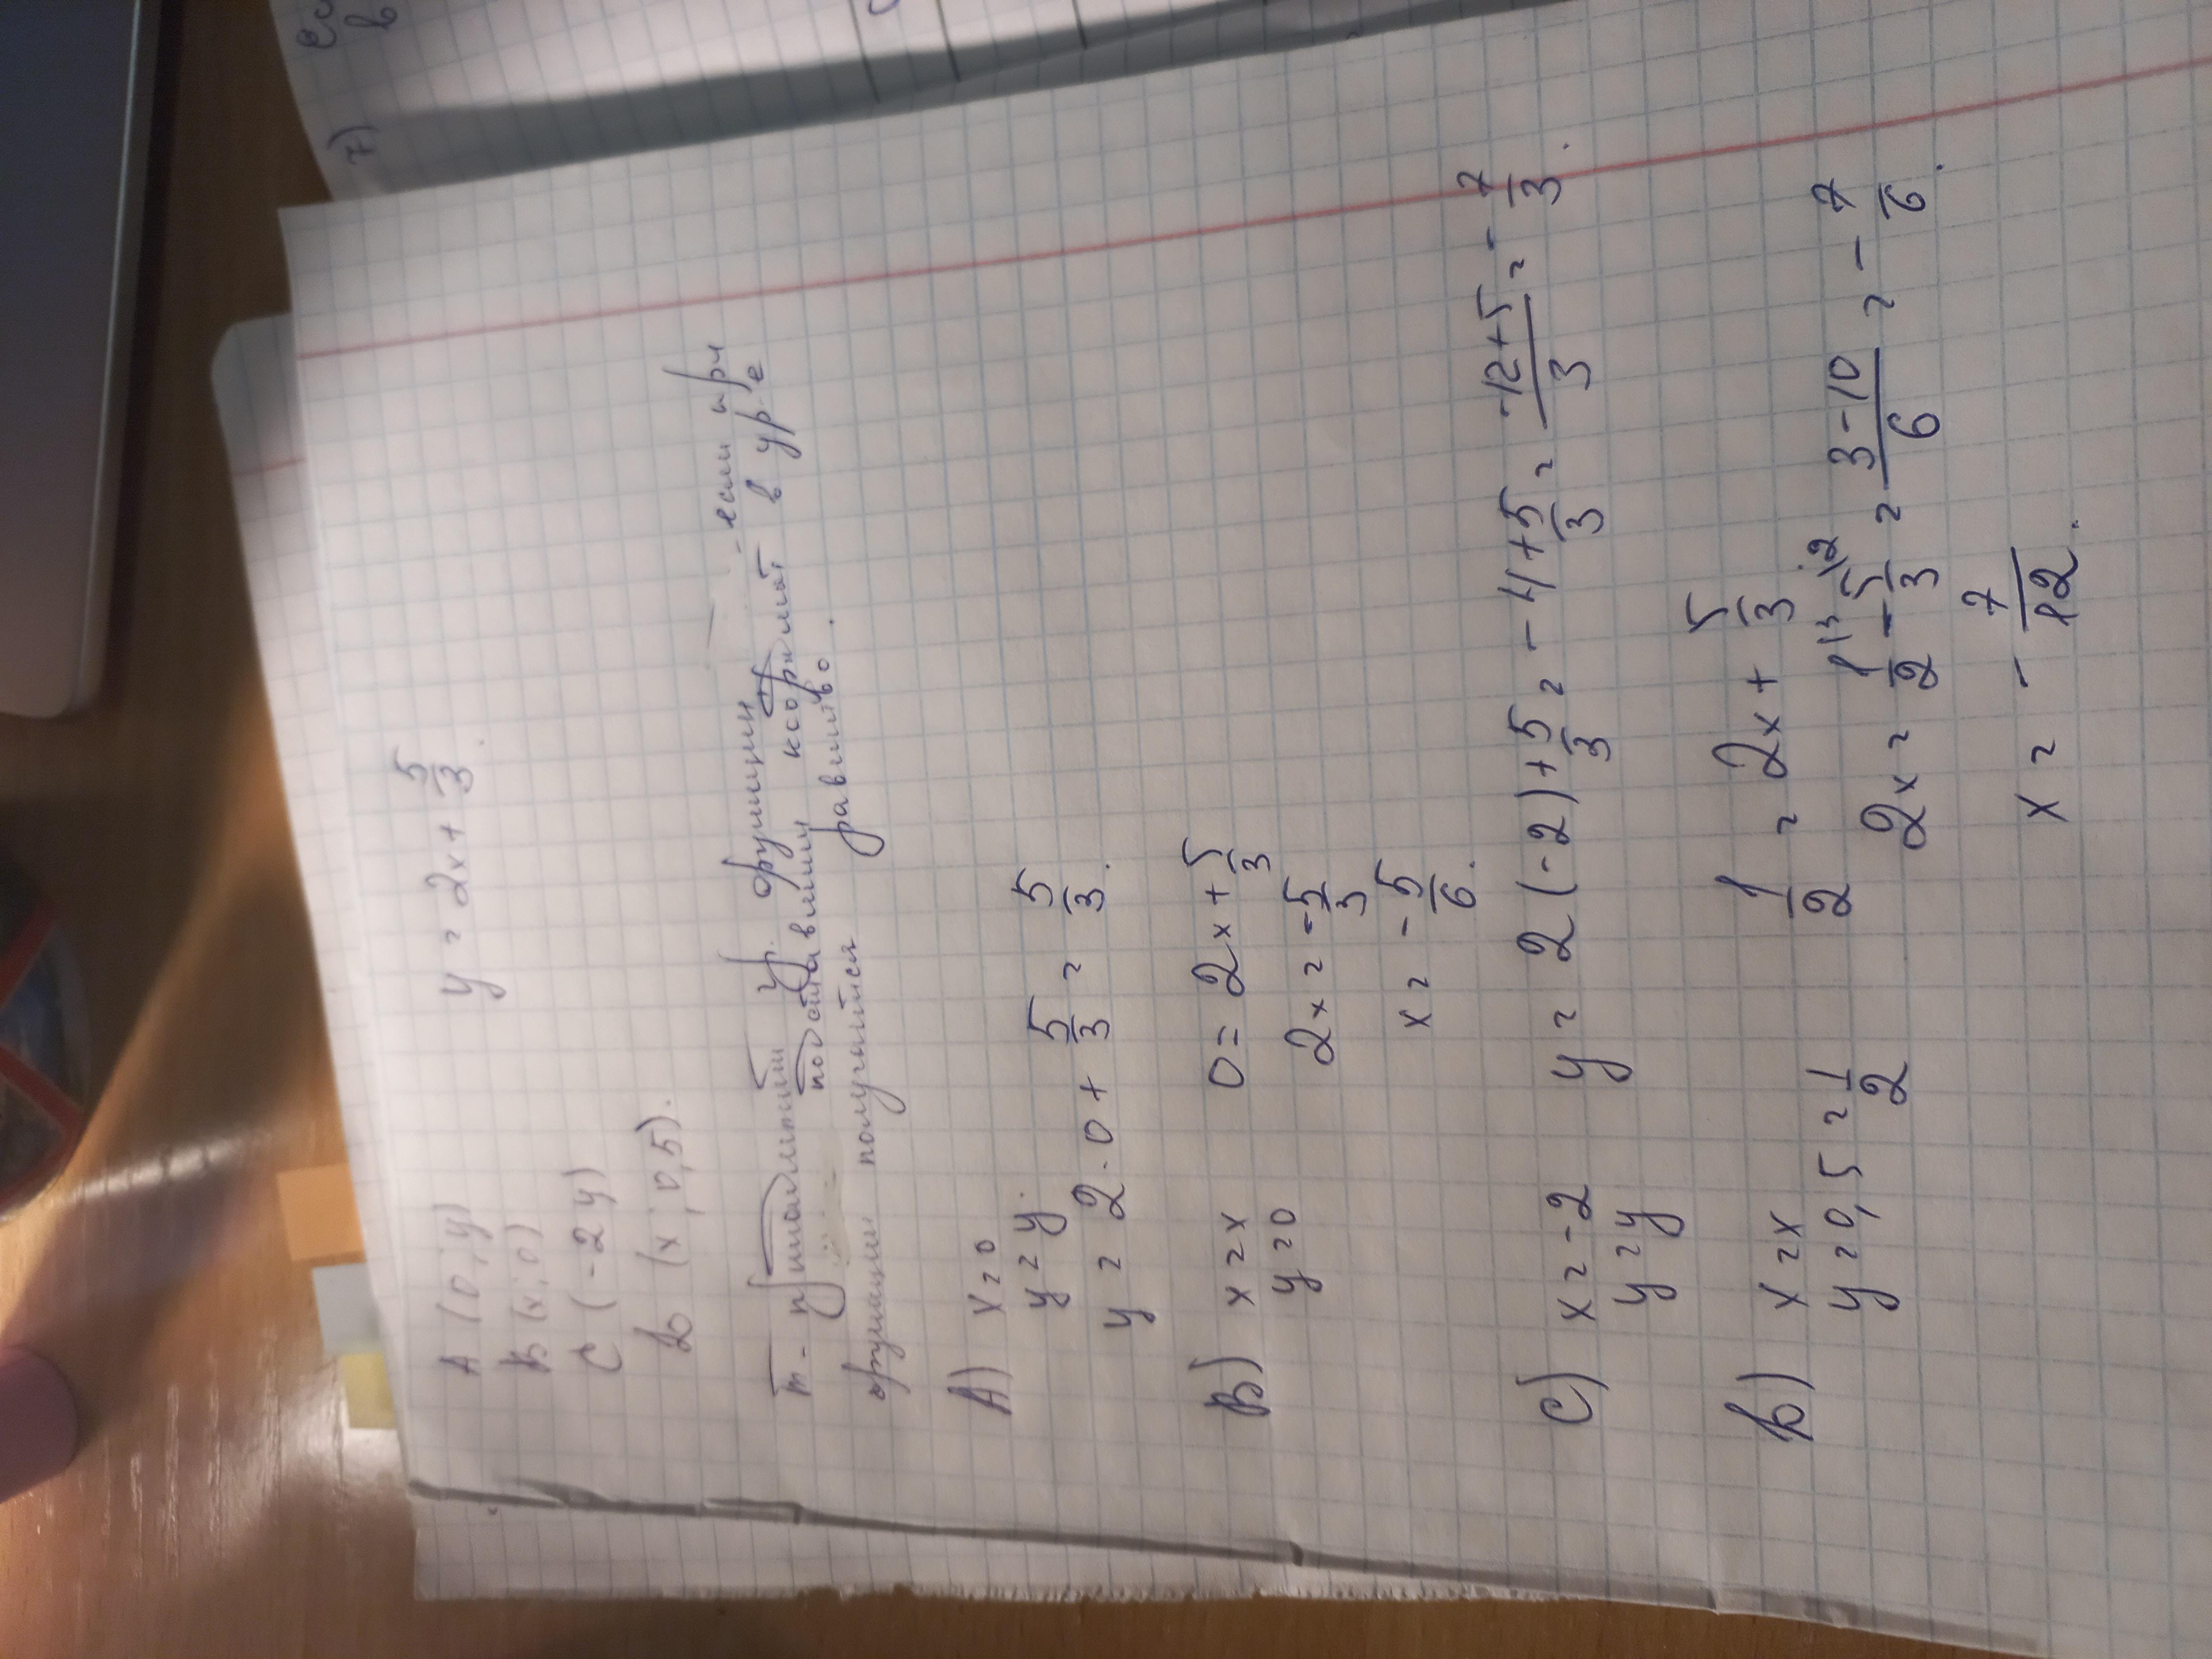 A (0; y)
y = 2x + 5/3.
B (x; 0)
C (-2 y)
D (x; 0,5).
т - принадлежит ур. функции если при
подставлении коорд в ур-е
функции получится равенство.
A) x = 0
y = y.
y = 2 · 0 + 5/3 = 5/3.
B) x = x
y = 0
0 = 2x + 5/3
2x = -5/3
x = -5/6.
C) x = -2
y = y
y = 2(-2) + 5/3 = -4 + 5/3 = -12+5/3 = -7/3.
D) x = x
y = 0,5 = 1/2
1/2 = 2x + 5/3
2x = 1/2 |3 - 5/3 |2 = 3-10/6 = -7/6.
x = -7/12.
7)